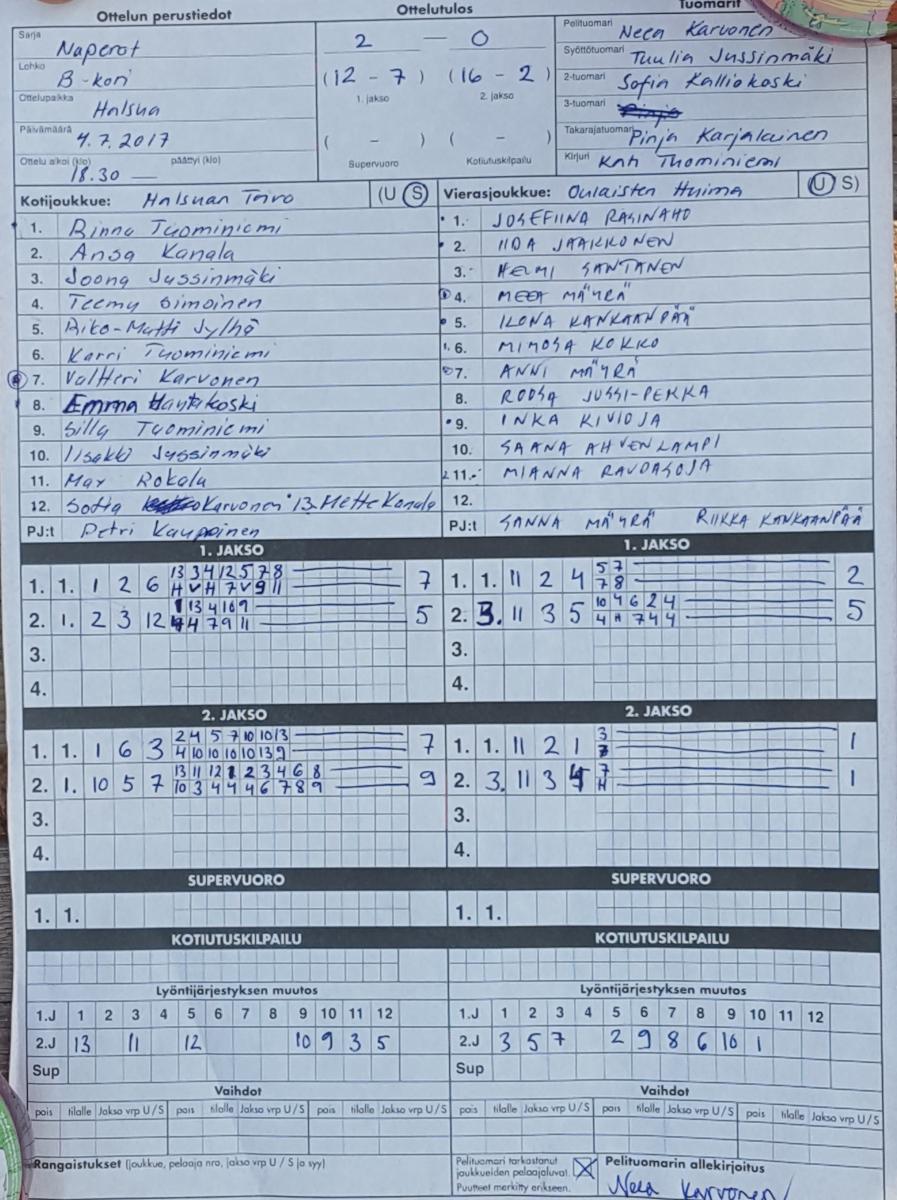 Ottelun perustiedot
Ottelutulos
Tuomarit
Sarja Naperot
Lohko B-kori
Ottelupaikka Halsua
Päivämäärä 4.7.2017
Ottelu alkoi (klo) 18.30 — päättyi (klo)
2 — 0
(12 - 7) (16 - 2)
1. jakso 2. jakso
( - ) ( - )
Supervuoro Kotiutuskilpailu
Pelituomari Neea Karvonen
Syöttötuomari Tuulia Jussinmäki
2-tuomari Sofia Kalliokoski
3-tuomari
Takarajatuomari Pinja Karjalainen
Kirjuri Tuominiemi
Kotijoukkue: Halsuan Toivo (U S)
1. Tuominiemi
2. Anga Kangla
3. Joona Jussinmäki
4. Teemu
5. Jylhä
6. Karri Tuominiemi
7. Valtteri Karvonen
8. Emma Hautakoski
9. Tuominiemi
10. Iisakki Jussinmäki
11. Max
12. Karvonen 13. Mette
PJ:t Petri
Vierasjoukkue: Oulaisten Huima (U S)
1. JOSEFIINA RASINAHO
2. IIDA JAAKKONEN
3. HELMI SANTANEN
4. MÄYRÄ
5. ILONA KANKAANPÄÄ
6. MIMOSA KOKKO
7. ANNI MÄYRÄ
8. ROOSA JUSSI-PEKKA
9. INKA KIVIOJA
10. SAANA AHVENLAMPI
11. MIANNA RAUDASOJA
12.
PJ:t SANNA MÄYRÄ RIIKKA KANKAANPÄÄ
1. JAKSO
1. 1. 1 2 6 13 3 4 12 5 7 8 7
H V H 7 V 9 11
2. 1. 2 3 12 13 4 10 9 5
4 7 9 11
3.
4.
1. JAKSO
1. 1. 11 2 4 5 7 2
7 8
2. 3. 11 3 5 10 4 6 2 4 5
4 H 7 4 4
3.
4.
2. JAKSO
1. 1. 1 6 3 2 4 5 7 10 10 13 7
4 10 10 10 10 13 9
2. 1. 10 5 7 13 11 12 1 2 3 4 6 8 9
10 3 4 4 4 6 7 8 9
3.
4.
2. JAKSO
1. 1. 11 2 1 3 1
2. 3. 11 3 4 7 1
H
3.
4.
SUPERVUORO
1. 1.
SUPERVUORO
1. 1.
KOTIUTUSKILPAILU
KOTIUTUSKILPAILU
Lyöntijärjestyksen muutos
1.J 1 2 3 4 5 6 7 8 9 10 11 12
2.J 13 11 12 10 9 3 5
Sup
Lyöntijärjestyksen muutos
1.J 1 2 3 4 5 6 7 8 9 10 11 12
2.J 3 5 7 2 9 8 6 10 1
Sup
Vaihdot
pois tilalle Jakso vrp U/S pois tilalle Jakso vrp U/S pois tilalle Jakso vrp U/S
Vaihdot
pois tilalle Jakso vrp U/S pois tilalle Jakso vrp U/S pois tilalle Jakso vrp U/S
Rangaistukset (joukkue, pelaaja nro, jakso vrp U / S ja syy)
Pelituomari tarkastanut
joukkueiden pelaajaluvat.
Puutteet merkitty erikseen.
Pelituomarin allekirjoitus
Neea Karvonen